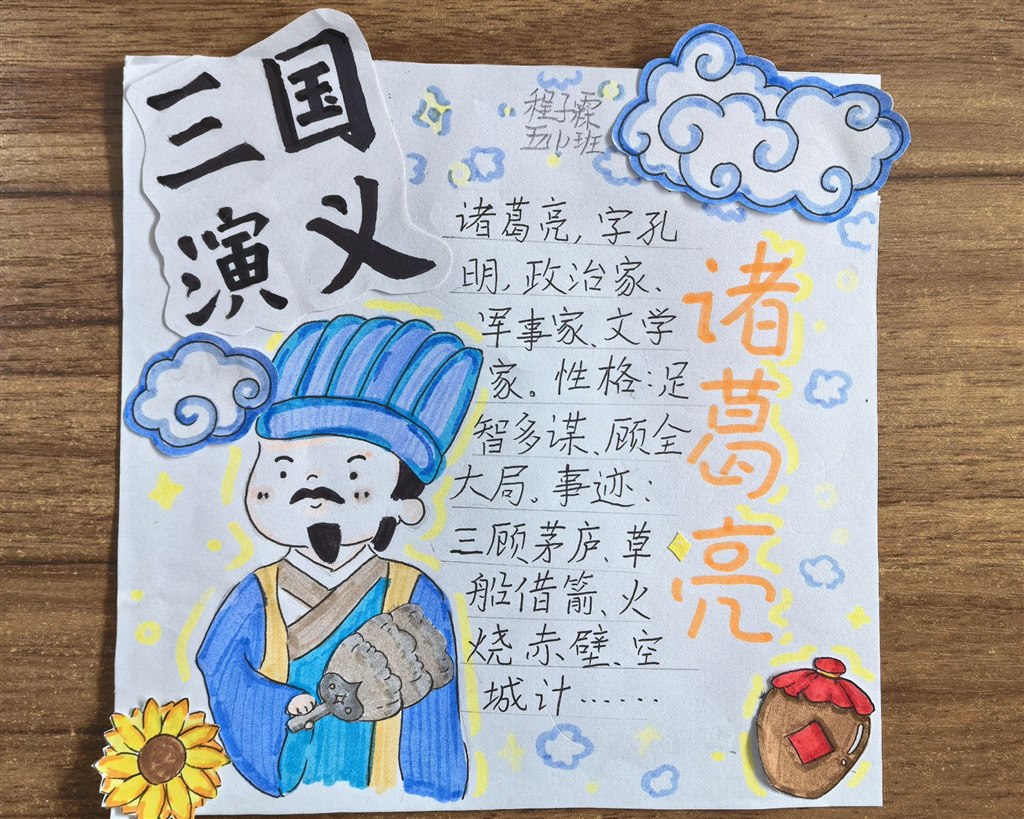 三国
演义
程子霖
诸葛亮,字孔
明,政治家、
军事家、文学
家。性格:足
智多谋、顾全
大局。事迹:
三顾茅庐、草
船借箭、火
烧赤壁、空
城计……
诸葛亮